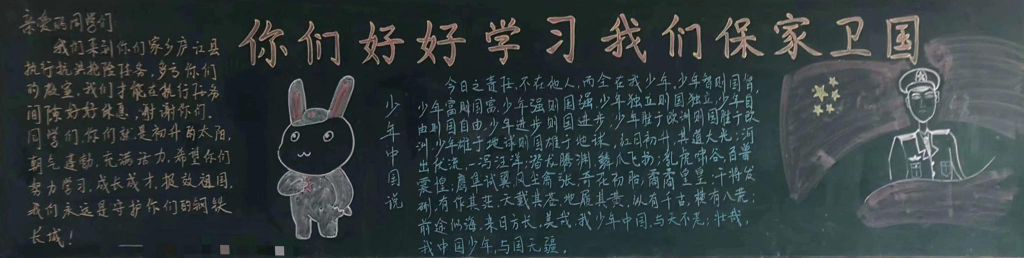 你们好好学习我们保家卫国
亲爱的同学们
我们来到你们家乡庐江县
执行抗洪抢险任务,多亏你们
的教室,我们才能在执行任务
间隙好好休息,谢谢你们。
同学们,你们就是初升的太阳,
朝气蓬勃,充满活力,希望你们
努力学习,成长成才,报效祖国,
我们永远是守护你们的钢铁
长城!
少年中国说
今日之责任,不在他人,而全在我少年,少年智则国智,
少年富则国富,少年强则国强,少年独立则国独立,少年自
由则国自由,少年进步则国进步,少年胜于欧洲则国胜于欧
洲,少年雄于地球则国雄于地球,红日初升,其道大光;河
出伏流,一泻汪洋;潜龙腾渊,鳞爪飞扬;乳虎啸谷,百兽
震惶;鹰隼试翼,风尘翕张,奇花初胎,矞矞皇皇;干将发
硎,有作其芒,天戴其苍,地履其黄,纵有千古,横有八荒;
前途似海,来日方长,美哉,我少年中国,与天不老;壮哉,
我中国少年,与国无疆。